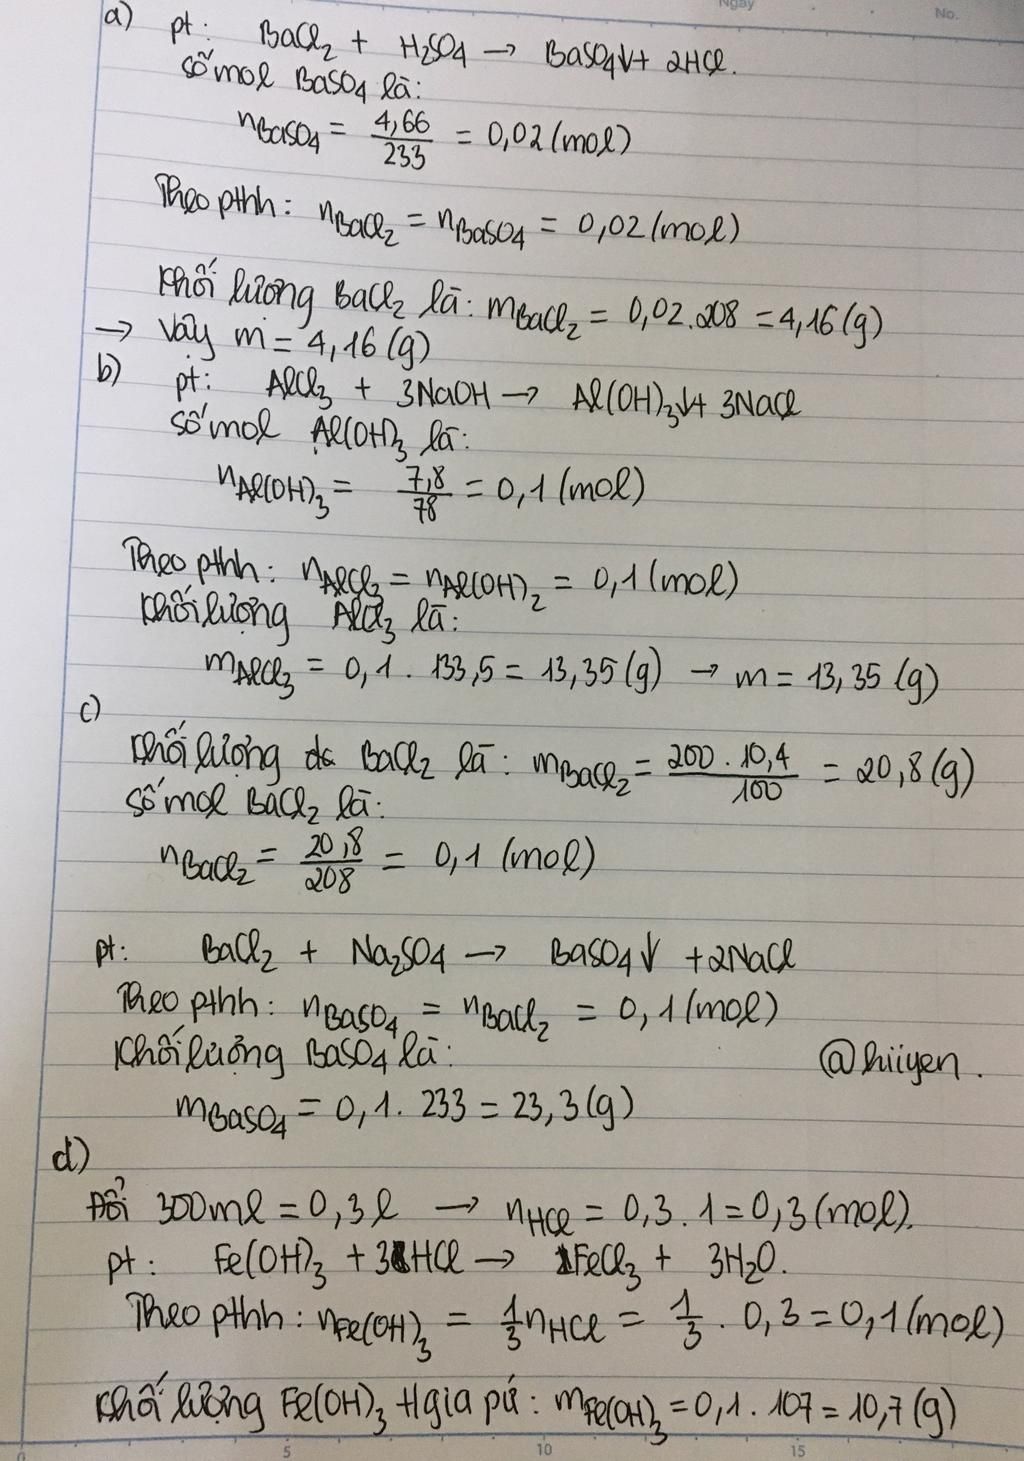 Ngày No.
a) pt: BaCl₂ + H₂SO₄ → BaSO₄↓ + 2HCl.
số mol BaSO₄ là:
nBaSO₄ = 4,66/233 = 0,02 (mol)
Theo pthh: nBaCl₂ = nBaSO₄ = 0,02 (mol)
Khối lượng BaCl₂ là: mBaCl₂ = 0,02.208 = 4,16 (g)
→ Vậy m = 4,16 (g)
b) pt: AlCl₃ + 3NaOH → Al(OH)₃↓ + 3NaCl
số mol Al(OH)₃ là:
nAl(OH)₃ = 7,8/78 = 0,1 (mol)
Theo pthh: nAlCl₃ = nAl(OH)₂ = 0,1 (mol)
Khối lượng AlCl₃ là:
mAlCl₃ = 0,1 . 133,5 = 13,35 (g) → m = 13,35 (g)
c)
Khối lượng BaCl₂ là: mBaCl₂ = 200 . 10,4/100 = 20,8 (g)
số mol BaCl₂ là:
nBaCl₂ = 20,8/208 = 0,1 (mol)
pt: BaCl₂ + Na₂SO₄ → BaSO₄↓ + 2NaCl
Theo pthh: nBaSO₄ = nBaCl₂ = 0,1 (mol)
Khối lượng BaSO₄ là:
@hiiyen.
mBaSO₄ = 0,1. 233 = 23,3 (g)
d)
Đổi 300ml = 0,3l → nHCl = 0,3 . 1 = 0,3 (mol).
pt: Fe(OH)₃ + 3HCl → FeCl₃ + 3H₂O.
Theo pthh: nFe(OH)₃ = 1/3 nHCl = 1/3 . 0,3 = 0,1 (mol)
Khối lượng Fe(OH)₃ tgia pứ: mFe(OH)₃ = 0,1 . 107 = 10,7 (g)
0 5 10 15